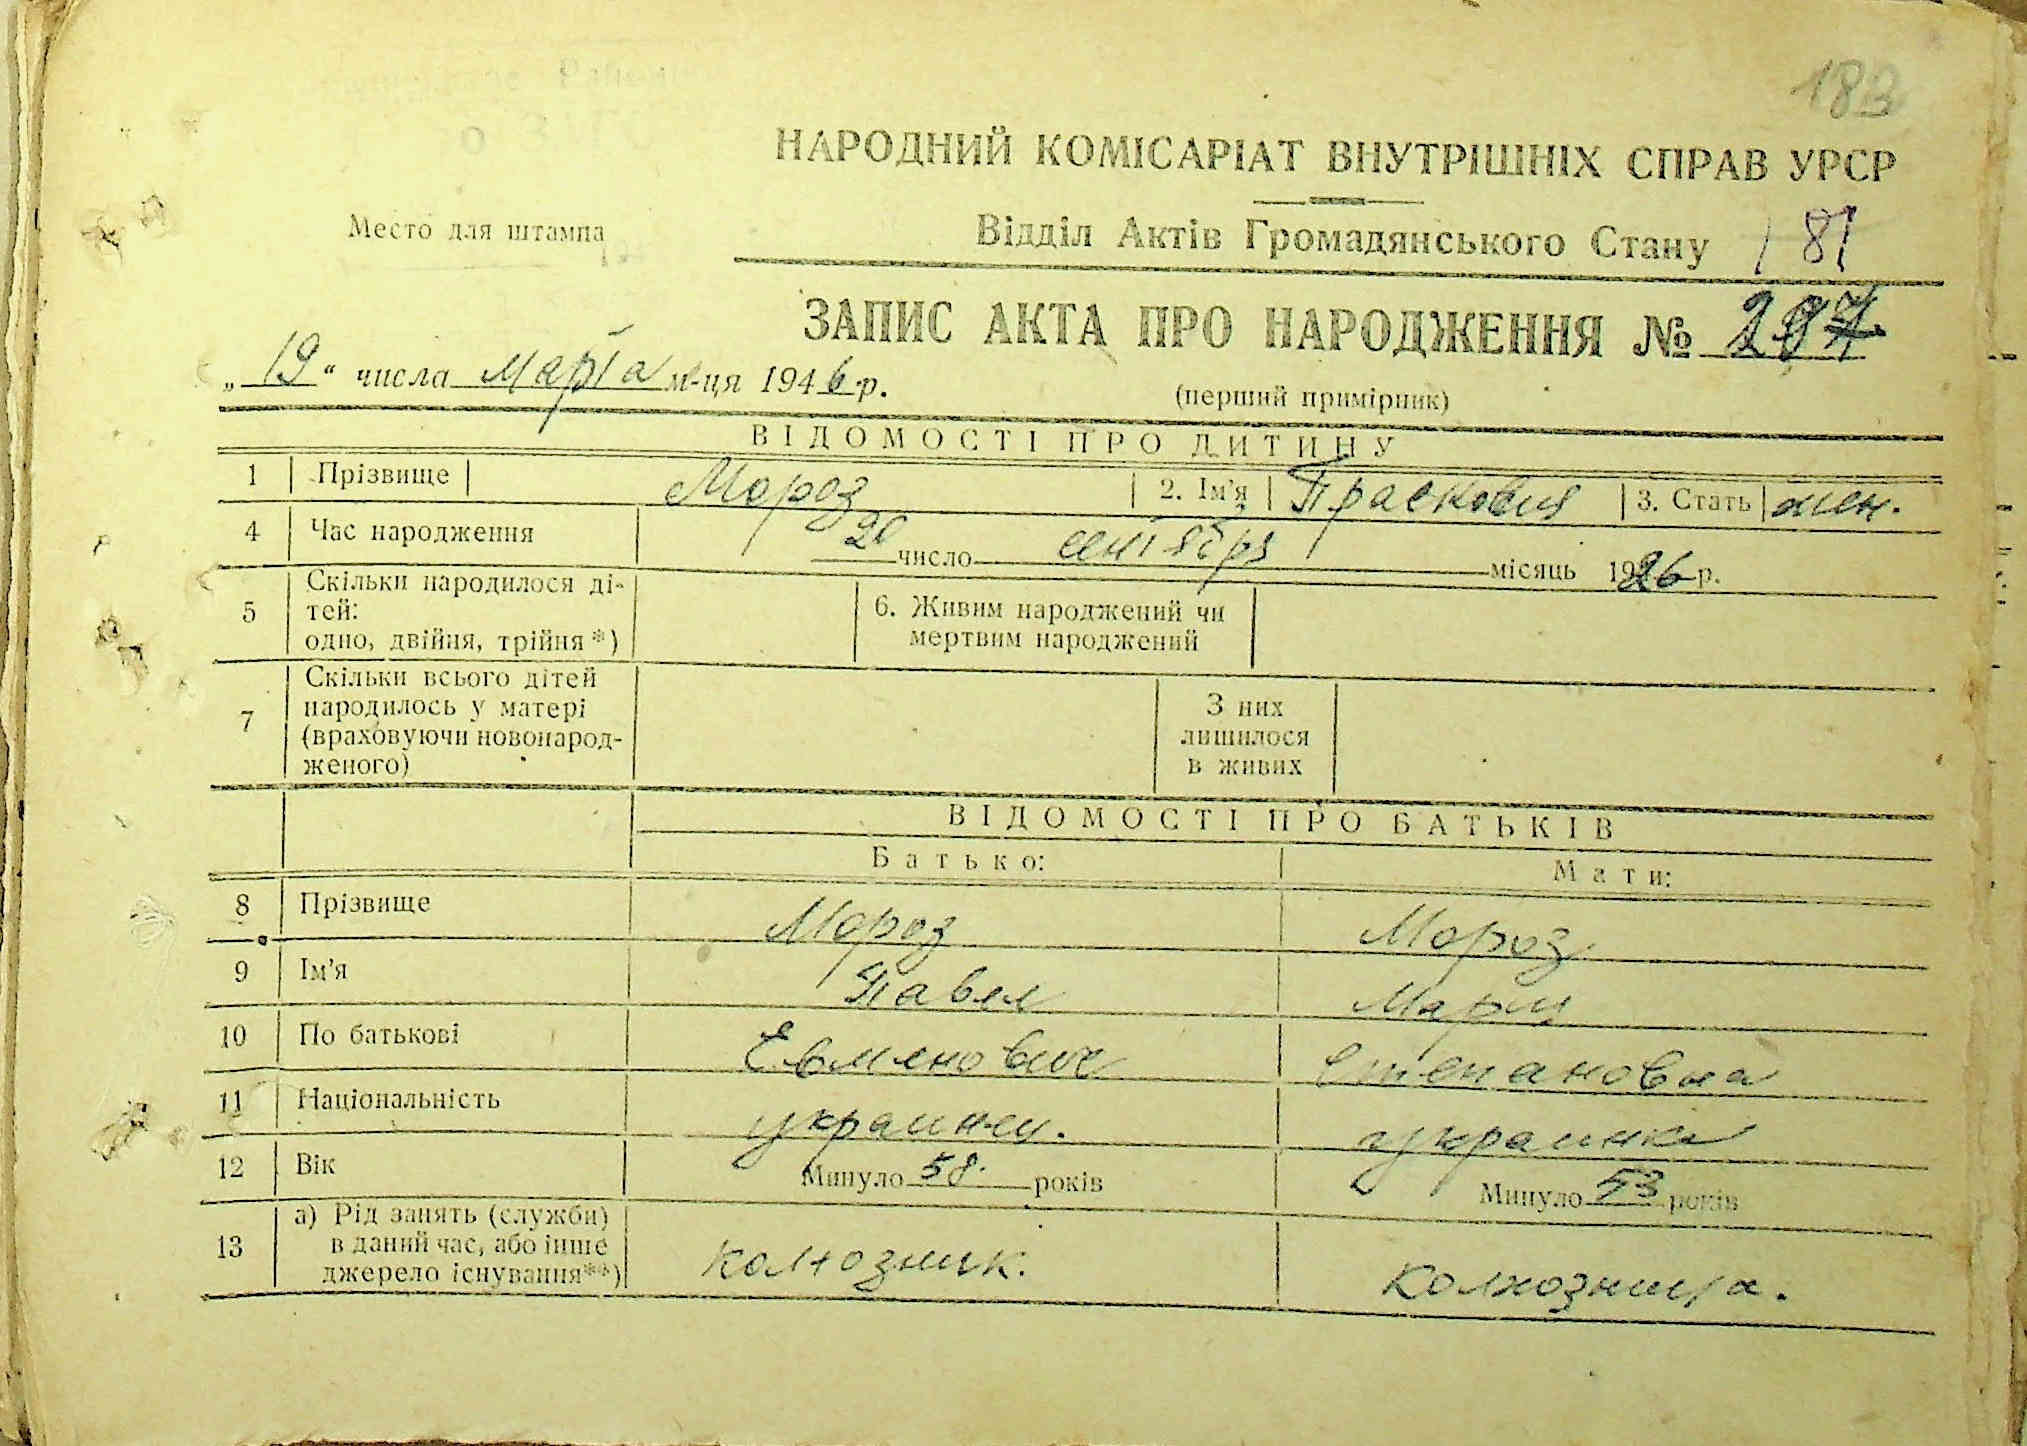 183
НАРОДНИЙ КОМІСАРІАТ ВНУТРІШНІХ СПРАВ УРСР
Место для штампа
Відділ Актів Громадянського Стану 181
ЗАПИС АКТА ПРО НАРОДЖЕННЯ №
„19“ числа марта м-ця 1946 р.
(перший примірник)
ВІДОМОСТІ ПРО ДИТИНУ
1 Прізвище Мороз 2. Ім'я Прасковия 3. Стать жен.
4 Час народження 20 число сентября місяць 1926 р.
5 Скільки народилося ді-
тей:
одно, двійня, трійня *)
6. Живим народжений чи
мертвим народжений
7 Скільки всього дітей
народилось у матері
(враховуючи новонарод-
женого)
З них
лишилося
в живих
ВІДОМОСТІ ПРО БАТЬКІВ
Батько: Мати:
8 Прізвище Мороз Мороз
9 Ім'я Павел Мария
10 По батькові Евменович Степановна
11 Національність украинец. украинка
12 Вік Минуло 58. років Минуло 53 років
13 а) Рід занять (служби)
в даний час, або інше
джерело існування**)
колхозник. колхозница.